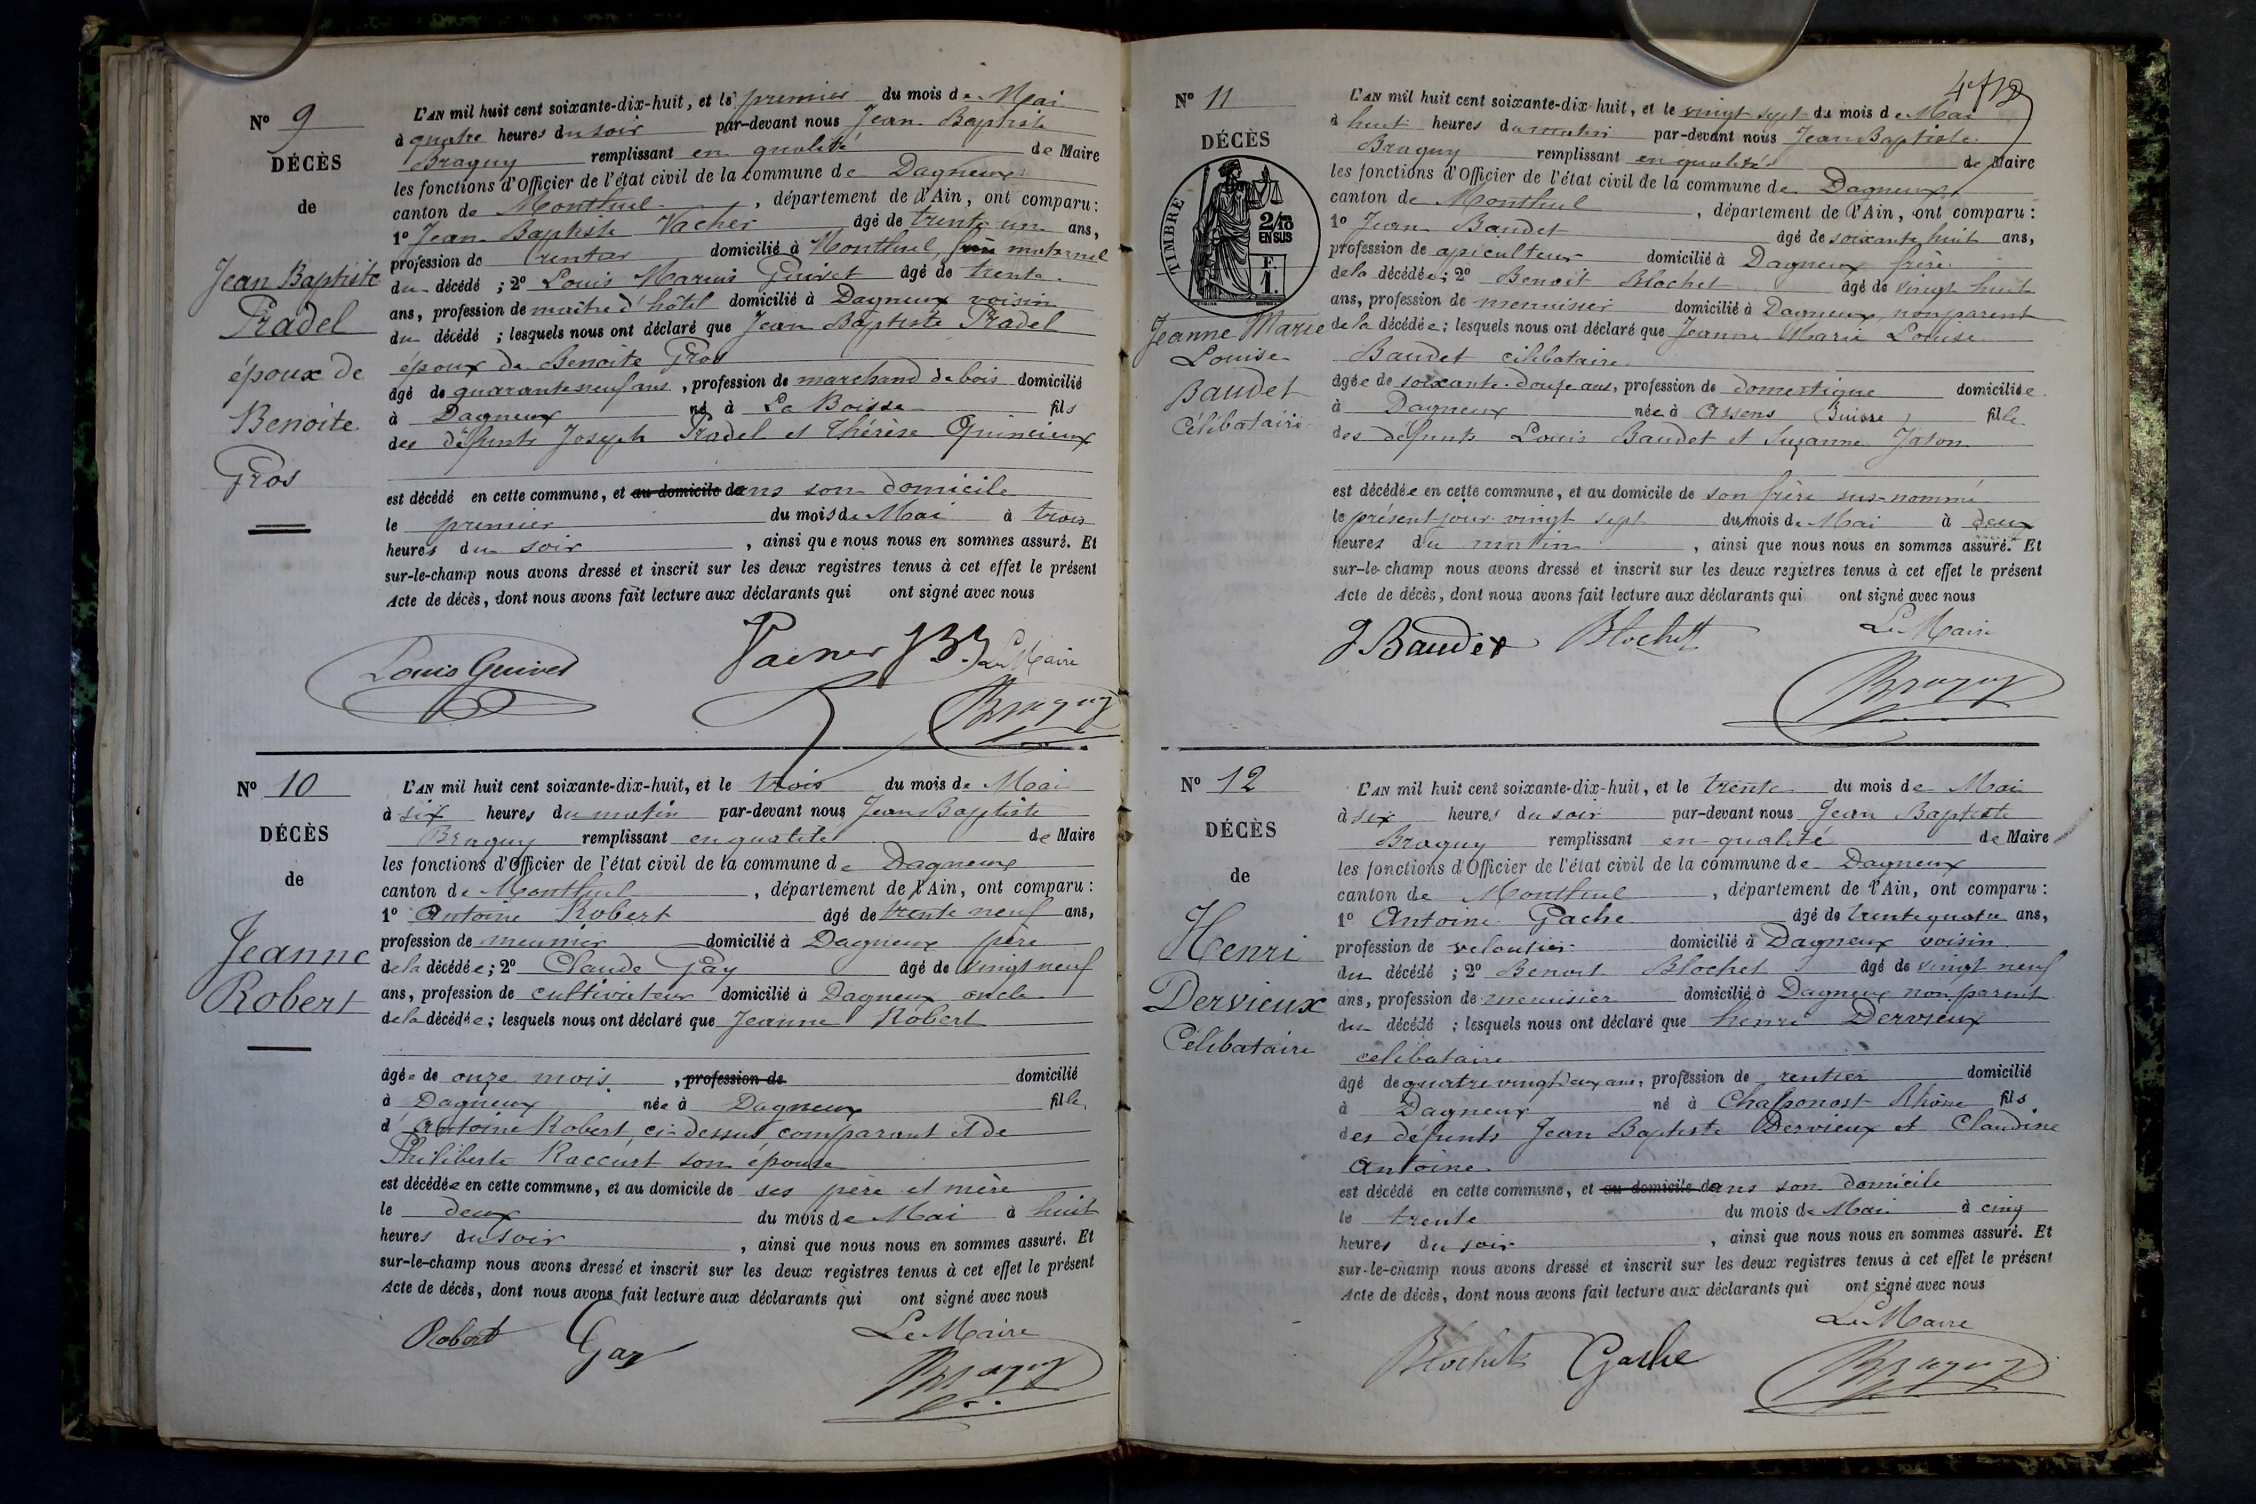 Nº 9
DÉCÈS
de
Jean Baptiste
Pradel
époux de
Benoite
Gros
L'AN mil huit cent soixante-dix-huit, et le premier du mois de Mai
à quatre heures du soir par-devant nous Jean Baptiste
Braguy remplissant en qualité de Maire
les fonctions d'Officier de l'état civil de la commune de Dagneux
canton de Montluel, département de l'Ain, ont comparu :
1º Jean Baptiste Vacher âgé de trente un ans,
profession de rentier domicilié à Montluel, maternel
du décédé ; 2º Louis Marius Guivet âgé de trente
ans, profession de maître d'hôtel domicilié à Dagneux voisin
du décédé ; lesquels nous ont déclaré que Jean Baptiste Pradel
époux de Benoite Gros
âgé de quarante neuf ans, profession de marchand de bois domicilié
à Dagneux né à La Boisse fils
des défunts Joseph Pradel et Thérèse Quincieux
est décédé en cette commune, et au domicile dans son domicile
le premier du mois de Mai à trois
heures du soir, ainsi que nous nous en sommes assuré. Et
sur-le-champ nous avons dressé et inscrit sur les deux registres tenus à cet effet le présent
Acte de décès, dont nous avons fait lecture aux déclarants qui ont signé avec nous
Louis Guivet Le Maire
Braguy
Nº 10
DÉCÈS
de
Jeanne
Robert
L'AN mil huit cent soixante-dix-huit, et le trois du mois de Mai
à six heures du matin par-devant nous Jean Baptiste
Braguy remplissant en qualité de Maire
les fonctions d'Officier de l'état civil de la commune de Dagneux
canton de Montluel, département de l'Ain, ont comparu :
1º Antoine Robert âgé de trente neuf ans,
profession de meunier domicilié à Dagneux père
de la décédée ; 2º Claude Gay âgé de vingt neuf
ans, profession de cultivateur domicilié à Dagneux oncle
de la décédée ; lesquels nous ont déclaré que Jeanne Robert
âgée de onze mois, profession de domicilié
à Dagneux née à Dagneux fille
d'Antoine Robert ci-dessus comparant et de
Philiberte Raccurt son épouse
est décédée en cette commune, et au domicile de ses père et mère
le deux du mois de Mai à huit
heures du soir, ainsi que nous nous en sommes assuré. Et
sur-le-champ nous avons dressé et inscrit sur les deux registres tenus à cet effet le présent
Acte de décès, dont nous avons fait lecture aux déclarants qui ont signé avec nous
Robert Gay Le Maire
Braguy
Nº 11
DÉCÈS
TIMBRE
2/10
EN SUS
F.
1.
Jeanne Marie
Louise
Baudet
Célibataire
L'AN mil huit cent soixante-dix-huit, et le vingt sept du mois de Mai
à huit heures du matin par-devant nous Jean Baptiste
Braguy remplissant en qualités de Maire
les fonctions d'Officier de l'état civil de la commune de Dagneux
canton de Montluel, département de l'Ain, ont comparu :
1º Jean Baudet âgé de soixante huit ans,
profession de apiculteur domicilié à Dagneux frère
de la décédée ; 2º Benoit Blochet âgé de vingt huit
ans, profession de menuisier domicilié à Dagneux, non parent
de la décédée ; lesquels nous ont déclaré que Jeanne Marie Louise
Baudet célibataire
âgée de soixante-douze ans, profession de domestique domiciliée
à Dagneux née à Assens (Suisse) fille
des défunts Louis Baudet et Suzanne Jaton
est décédée en cette commune, et au domicile de son frère sus-nommé
le présent jour vingt sept du mois de Mai à deux
heures du matin, ainsi que nous nous en sommes assuré. Et
sur-le-champ nous avons dressé et inscrit sur les deux registres tenus à cet effet le présent
Acte de décès, dont nous avons fait lecture aux déclarants qui ont signé avec nous
J Baudet Blochet Le Maire
Braguy
Nº 12
DÉCÈS
de
Henri
Dervieux
Célibataire
L'AN mil huit cent soixante-dix-huit, et le trente du mois de Mai
à six heures du soir par-devant nous Jean Baptiste
Braguy remplissant en qualité de Maire
les fonctions d'Officier de l'état civil de la commune de Dagneux
canton de Montluel, département de l'Ain, ont comparu :
1º Antoine Gache âgé de trente quatre ans,
profession de veloutier domicilié à Dagneux voisin
du décédé ; 2º Benoit Blochet âgé de vingt neuf
ans, profession de menuisier domicilié à Dagneux non parent
du décédé ; lesquels nous ont déclaré que henri Dervieux
célibataire
âgé de quatre vingt deux ans, profession de rentier domicilié
à Dagneux né à Chaponost Rhône fils
des défunts Jean Baptiste Dervieux et Claudine
Antoine
est décédé en cette commune, et au domicile dans son domicile
le trente du mois de Mai à cinq
heures du soir, ainsi que nous nous en sommes assuré. Et
sur-le-champ nous avons dressé et inscrit sur les deux registres tenus à cet effet le présent
Acte de décès, dont nous avons fait lecture aux déclarants qui ont signé avec nous
Blochet Gache Le Maire
Braguy